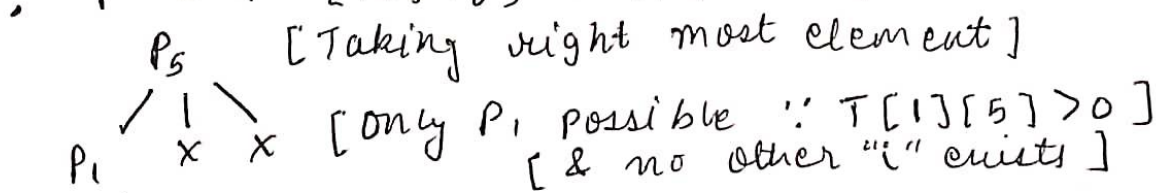 P5 [Taking right most element]
[only P1 possible ∵ T[1][5]>0]
P1 x x [& no other "i" exists]